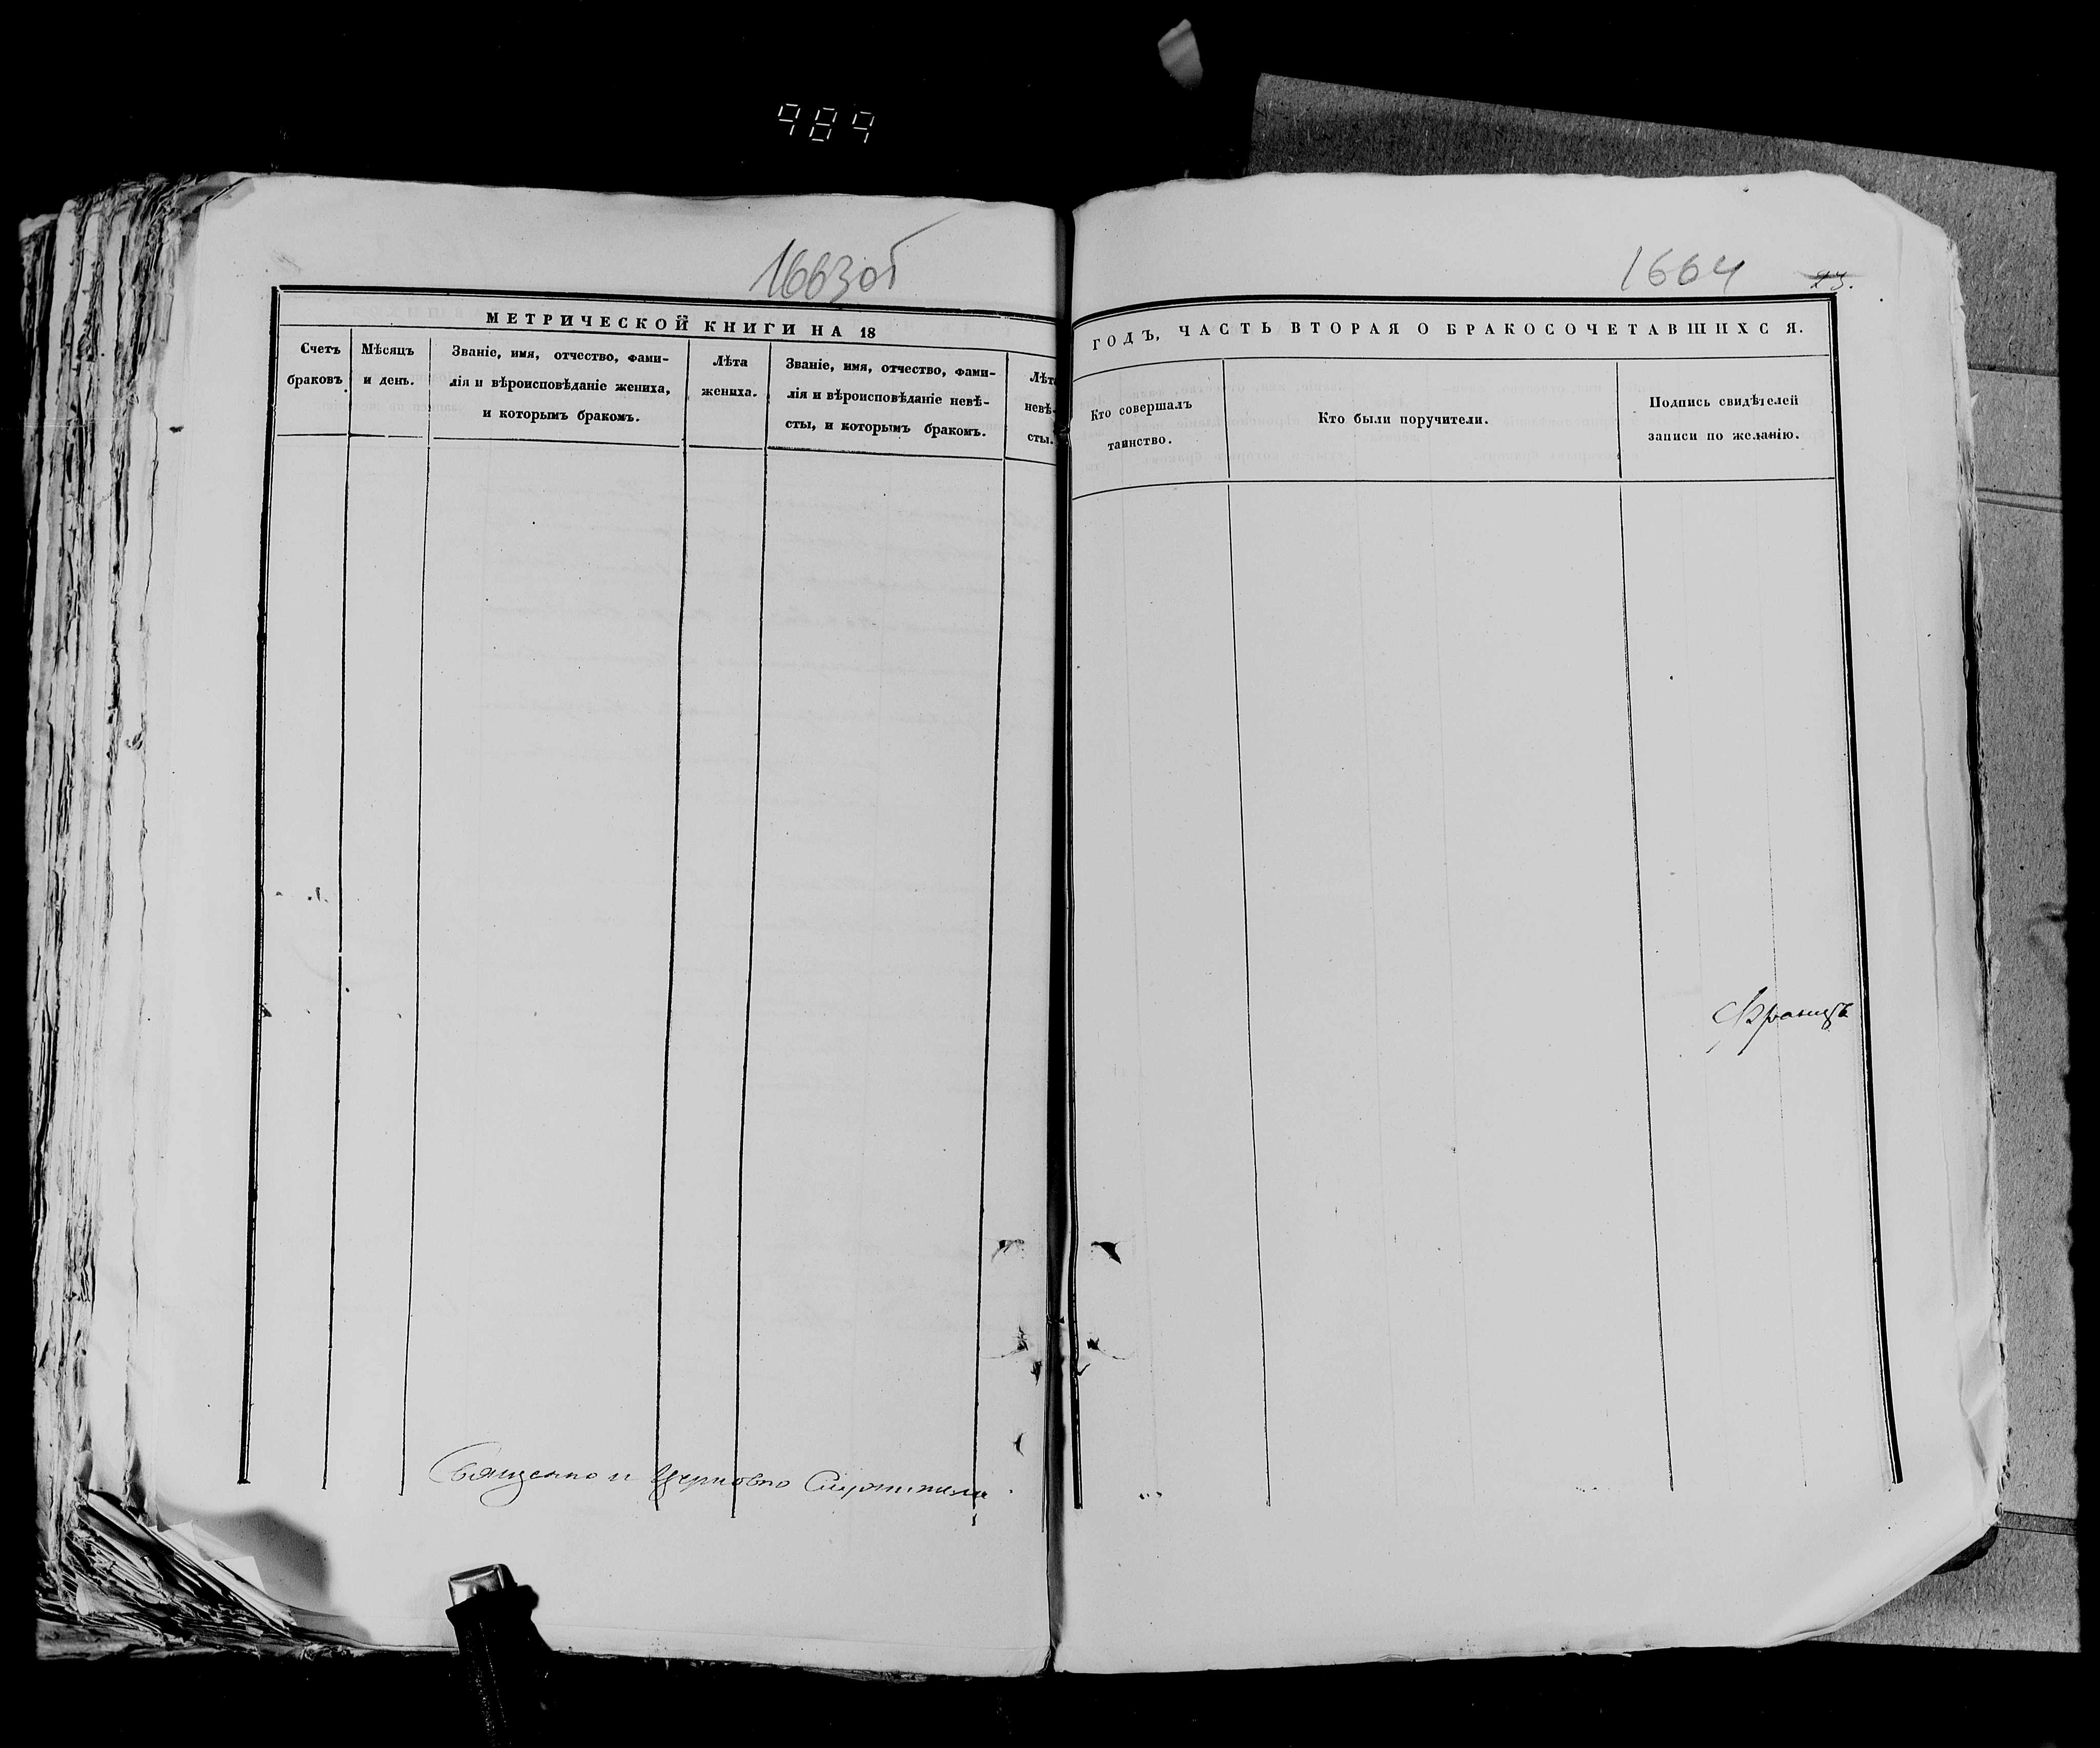 989
1663об
МЕТРИЧЕСКОЙ КНИГИ НА 18
Счетъ браковъ
Мѣсяцъ и день.
Званіе, имя, отчество, фами-
лія и вѣроисповѣданіе жениха,
и которымъ бракомъ.
Лѣта
жениха.
Званіе, имя, отчество, фами-
лія и вѣроисповѣданіе невѣ-
сты, и которымъ бракомъ.
Лѣта
невѣ-
сты.
Священно и Церковно Служители
1664
23.
ГОДЪ, ЧАСТЬ ВТОРАЯ О БРАКОСОЧЕТАВШИХСЯ.
Кто совершалъ
таинство.
Кто были поручители.
Подпись свидѣтелей
записи по желанію.